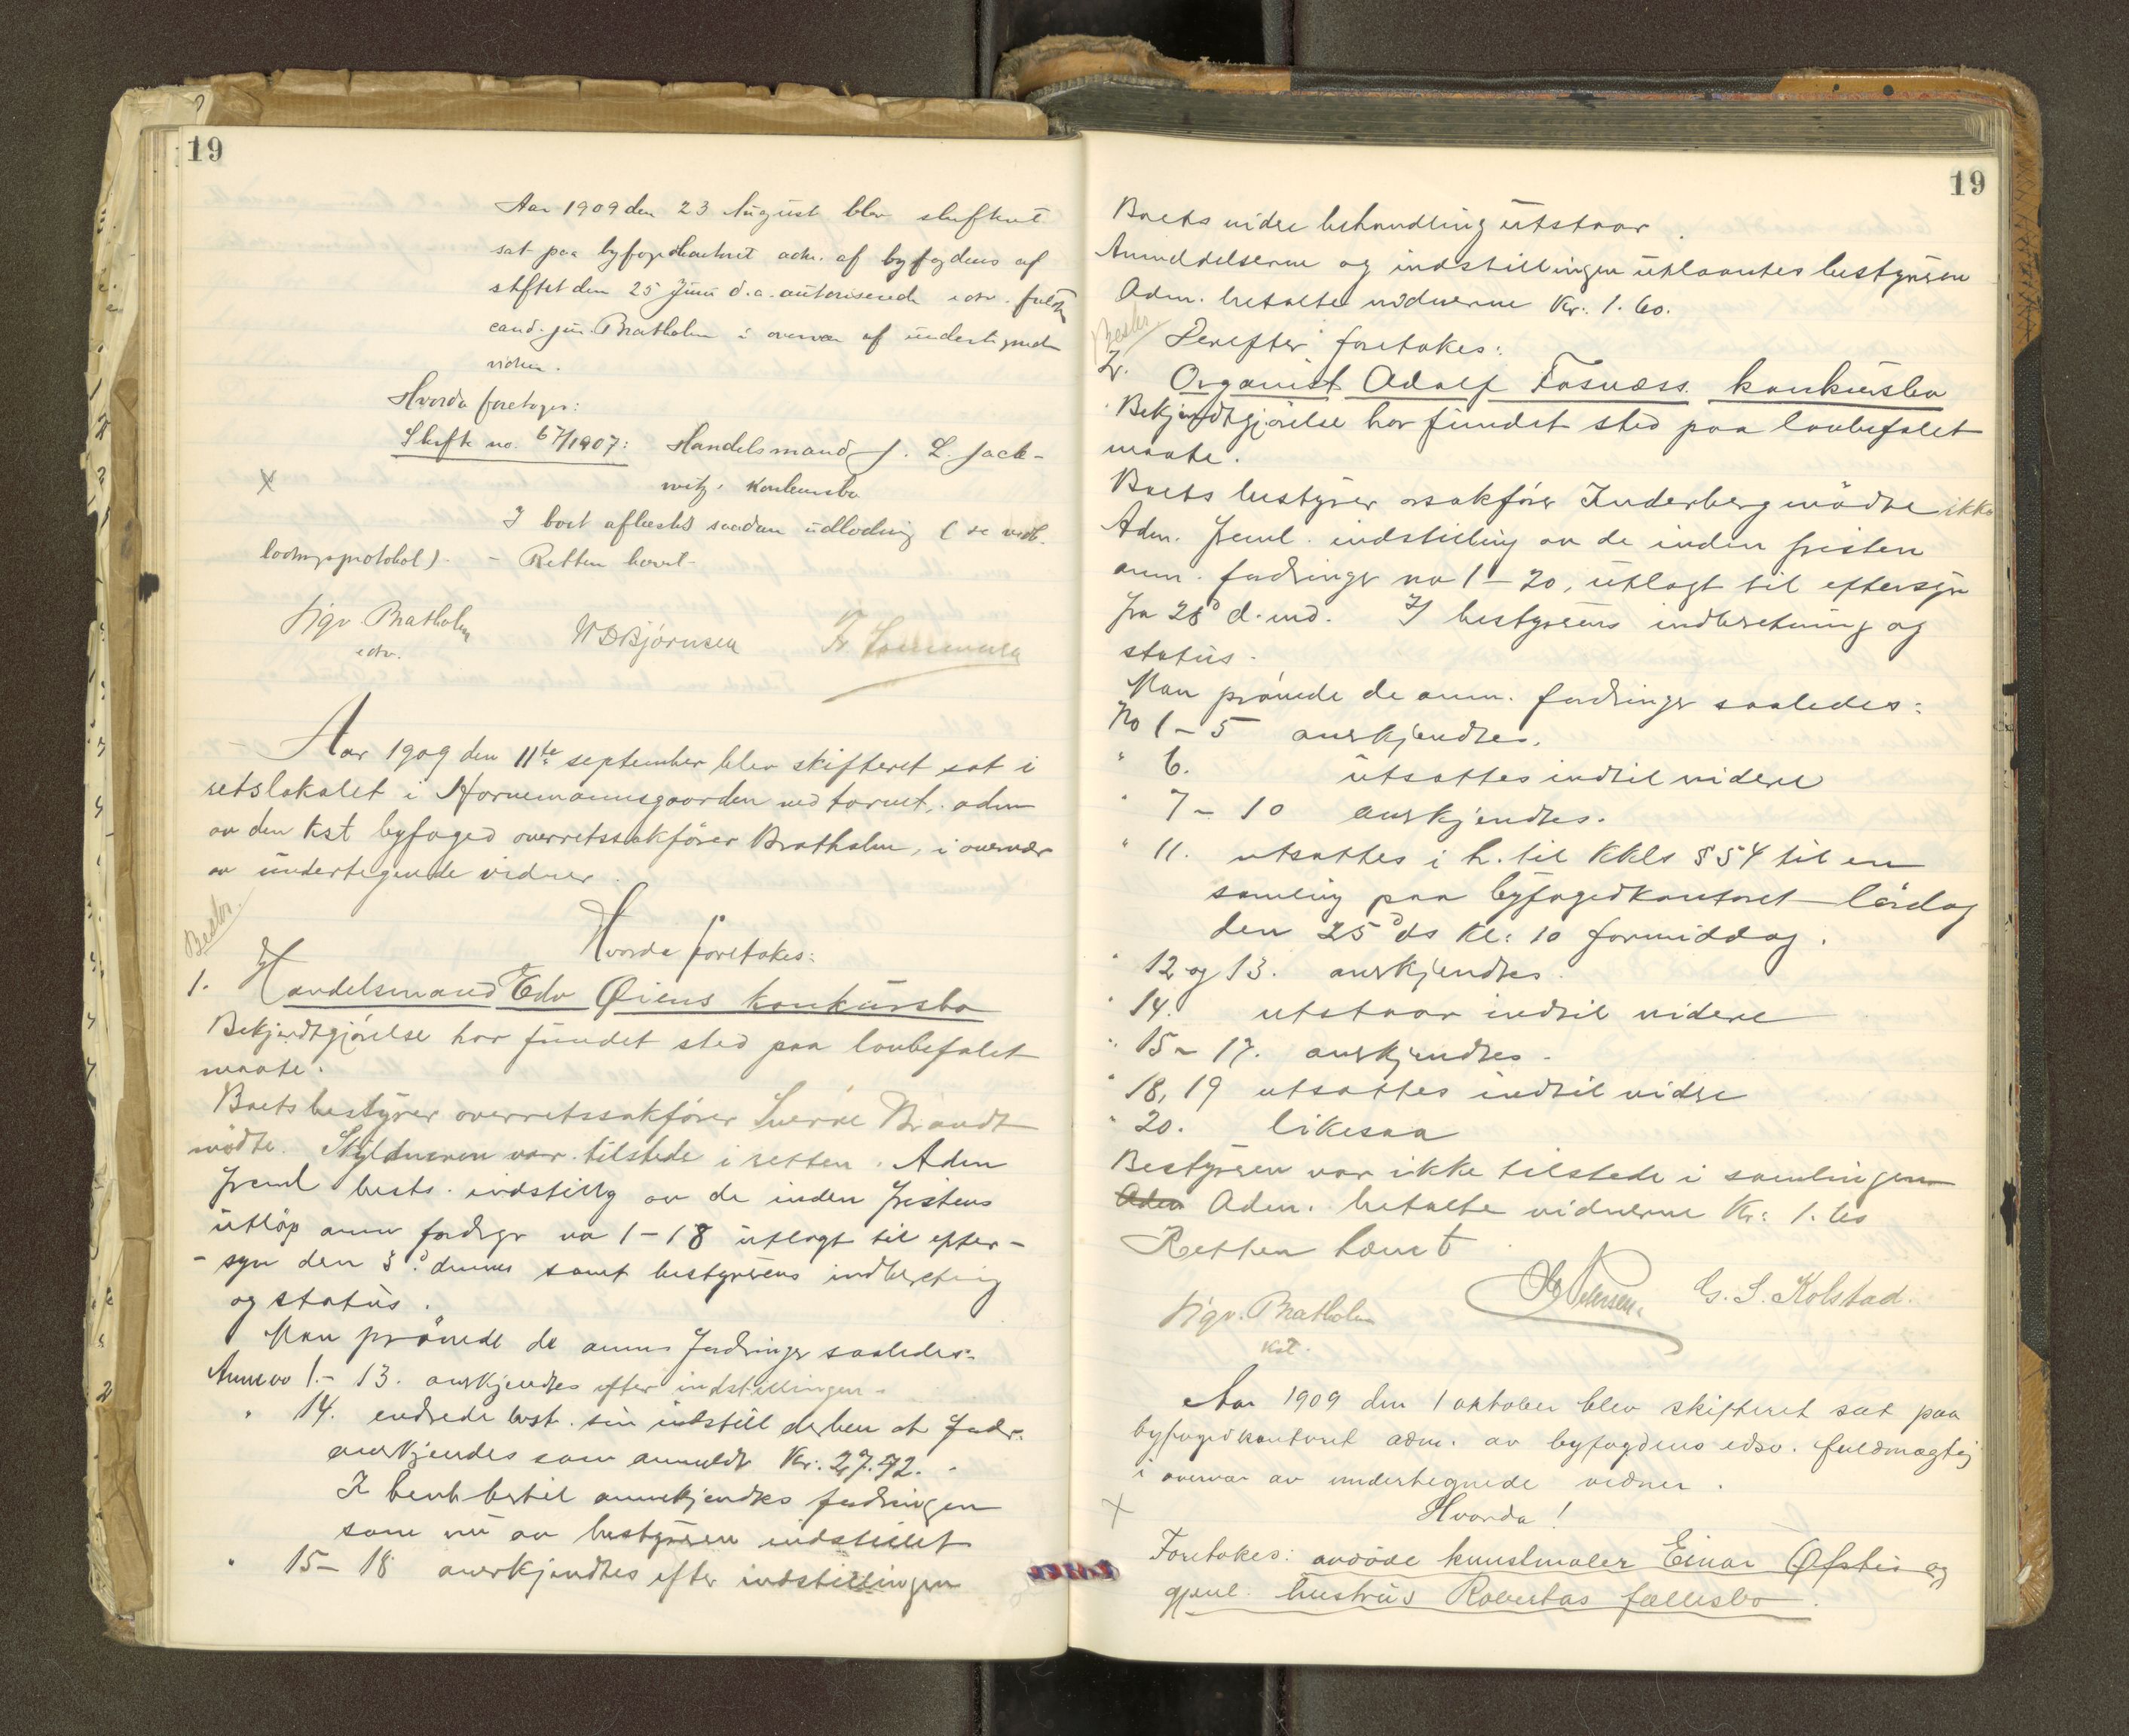 19
Aar 1909 den 23 August blev skifteret
sat paa byfogedkontoret adm. af byfogdens af
stiftet den 25 Juni d.a. autoriserede edsv. fuldm
cand. jur. Bratholm i overvær af undertegnede
vidner.
Hvorda foretages:
Skifte no. 67/1907: Handelsmand J. L. Jack-
witz' konkursbo
I boet afluttedes saadan udlodning (se udl.
lodningsprotokol). - Retten hævet-
Sigv. Bratholm
edsv.
W D Bjørnsen
Fr.
Aar 1909 den 11te september blev skifteret sat i
retslokalet i Hornemannsgaarden ved torvet, adm
av den kst byfoged overretssakfører Bratholm, i overvær
av undertegnede vidner.
Beslr.
Hvorda foretokes:
1. Handelsmand Edv Øiens konkursbo
Bekjendtgjørelse har fundet sted paa lovbefalet
maate.
Boets bestyrer overretssakfører Sverre Brandt
mødte. Skyldneren var tilstede i retten. Adm
freml bests. indstillg av de inden fristens
utløp anm fordrgr no 1-18 utlagt til efter-
-syn den 3d. dennes samt bestyrerens indberetning
og status.
Man prøvede de anm fordringer saaledes:
Anm no 1.- 13. anerkjendtes efter indstillingen.
" 14. endrede best. sin indstill derhen at fordr.
anerkjendes som anmeldt Kr. 27.72.
I henh hertil anerkjendtes fordringen
som nu av bestyreren indstillet
" 15- 18 anerkjendtes efter indstillingen
19
Boets vidre behandling utstaar.
Anmeldelserne og indstillingen utlaantes bestyreren
Adm. betalte vidnerne Kr. 1.60.
Beslr
Derefter foretokes:
2. Organist Adolf Fosnæss. konkursbo
Bekjendtgjørelse har fundet sted paa lovbefalet
maate.
Boets bestyrer orsakfører Inderberg mødte ikke
Adm. freml. indstilling av de inden fristen
anm. fordringer no 1-20, utlagt til eftersyn
fra 28d d. md. I bestyrerens indberetning og
status.
Man prøvede de anm. fordringer saaledes:
No 1-5 anerkjendtes.
" 6. utsattes indtil videre
" 7- 10 anerkjendtes.
" 11. utsattes i h. til kkls § 54 til en
samling paa byfogedkontoret lørdag
den 25d ds kl: 10 formiddag.
" 12 og 13. anerkjendtes.
" 14. utstaar indtil videre
" 15- 17. anerkjendtes.
" 18, 19 utsattes indtil vidre
" 20. likesaa
Bestyreren var ikke tilstede i samlingen
Adm Adm. betalte vidnerne Kr: 1.60
Retten hævet
Sigv. Bratholm
kst.
Petersen.
G. S. Kolstad.
Aar 1909 den 1 oktober blev skifteret sat paa
byfogedkontoret adm. av byfogdens edsv. fuldmægtig
i overvær av undertegnede vidner.
Hvorda!
Foretokes: avdøde kunstmaler Einar Øfsti og
gjenl. hustrus Robertas fællesbo.